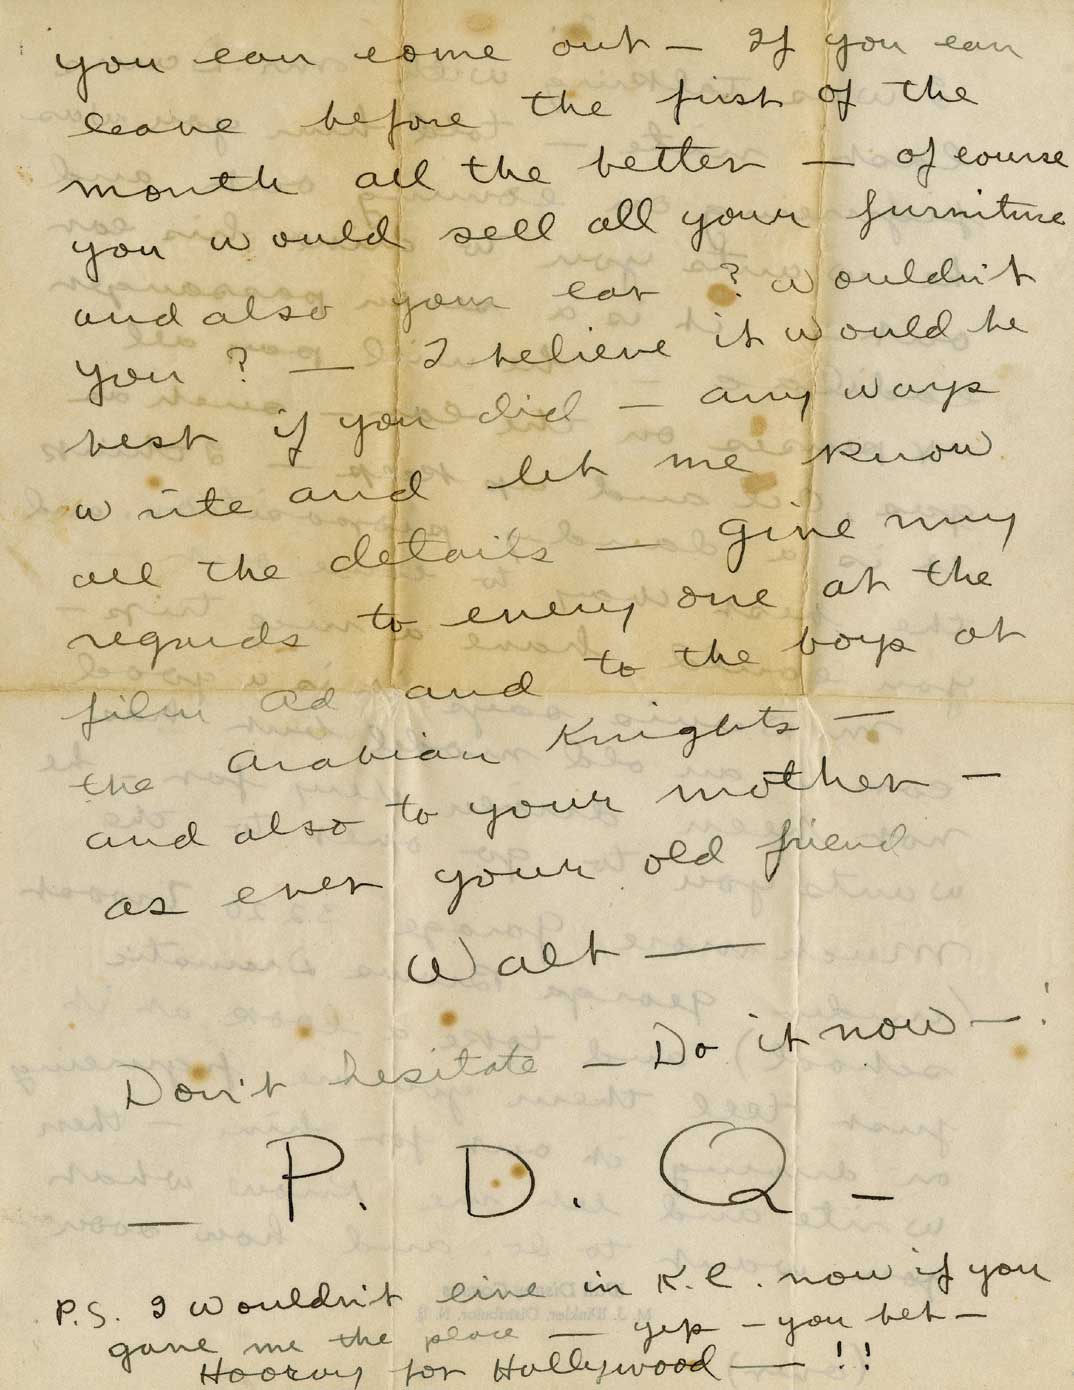 you can come out — If you can
leave before the first of the
month all the better — of course
you would sell all your furniture
and also your car ? wouldn't
you ? — I believe it would be
best if you did — any ways
write and let me know
all the details — give my
regards to every one at the
film ad and to the boys at
the Arabian Knights —
and also to your mother —
as ever your old friend
Walt —
Don't hesitate — Do it now — !
— P. D. Q —
P.S. I wouldn't live in K.C. now if you
gave me the place — yep — you bet —
Hooray for Hollywood — !!